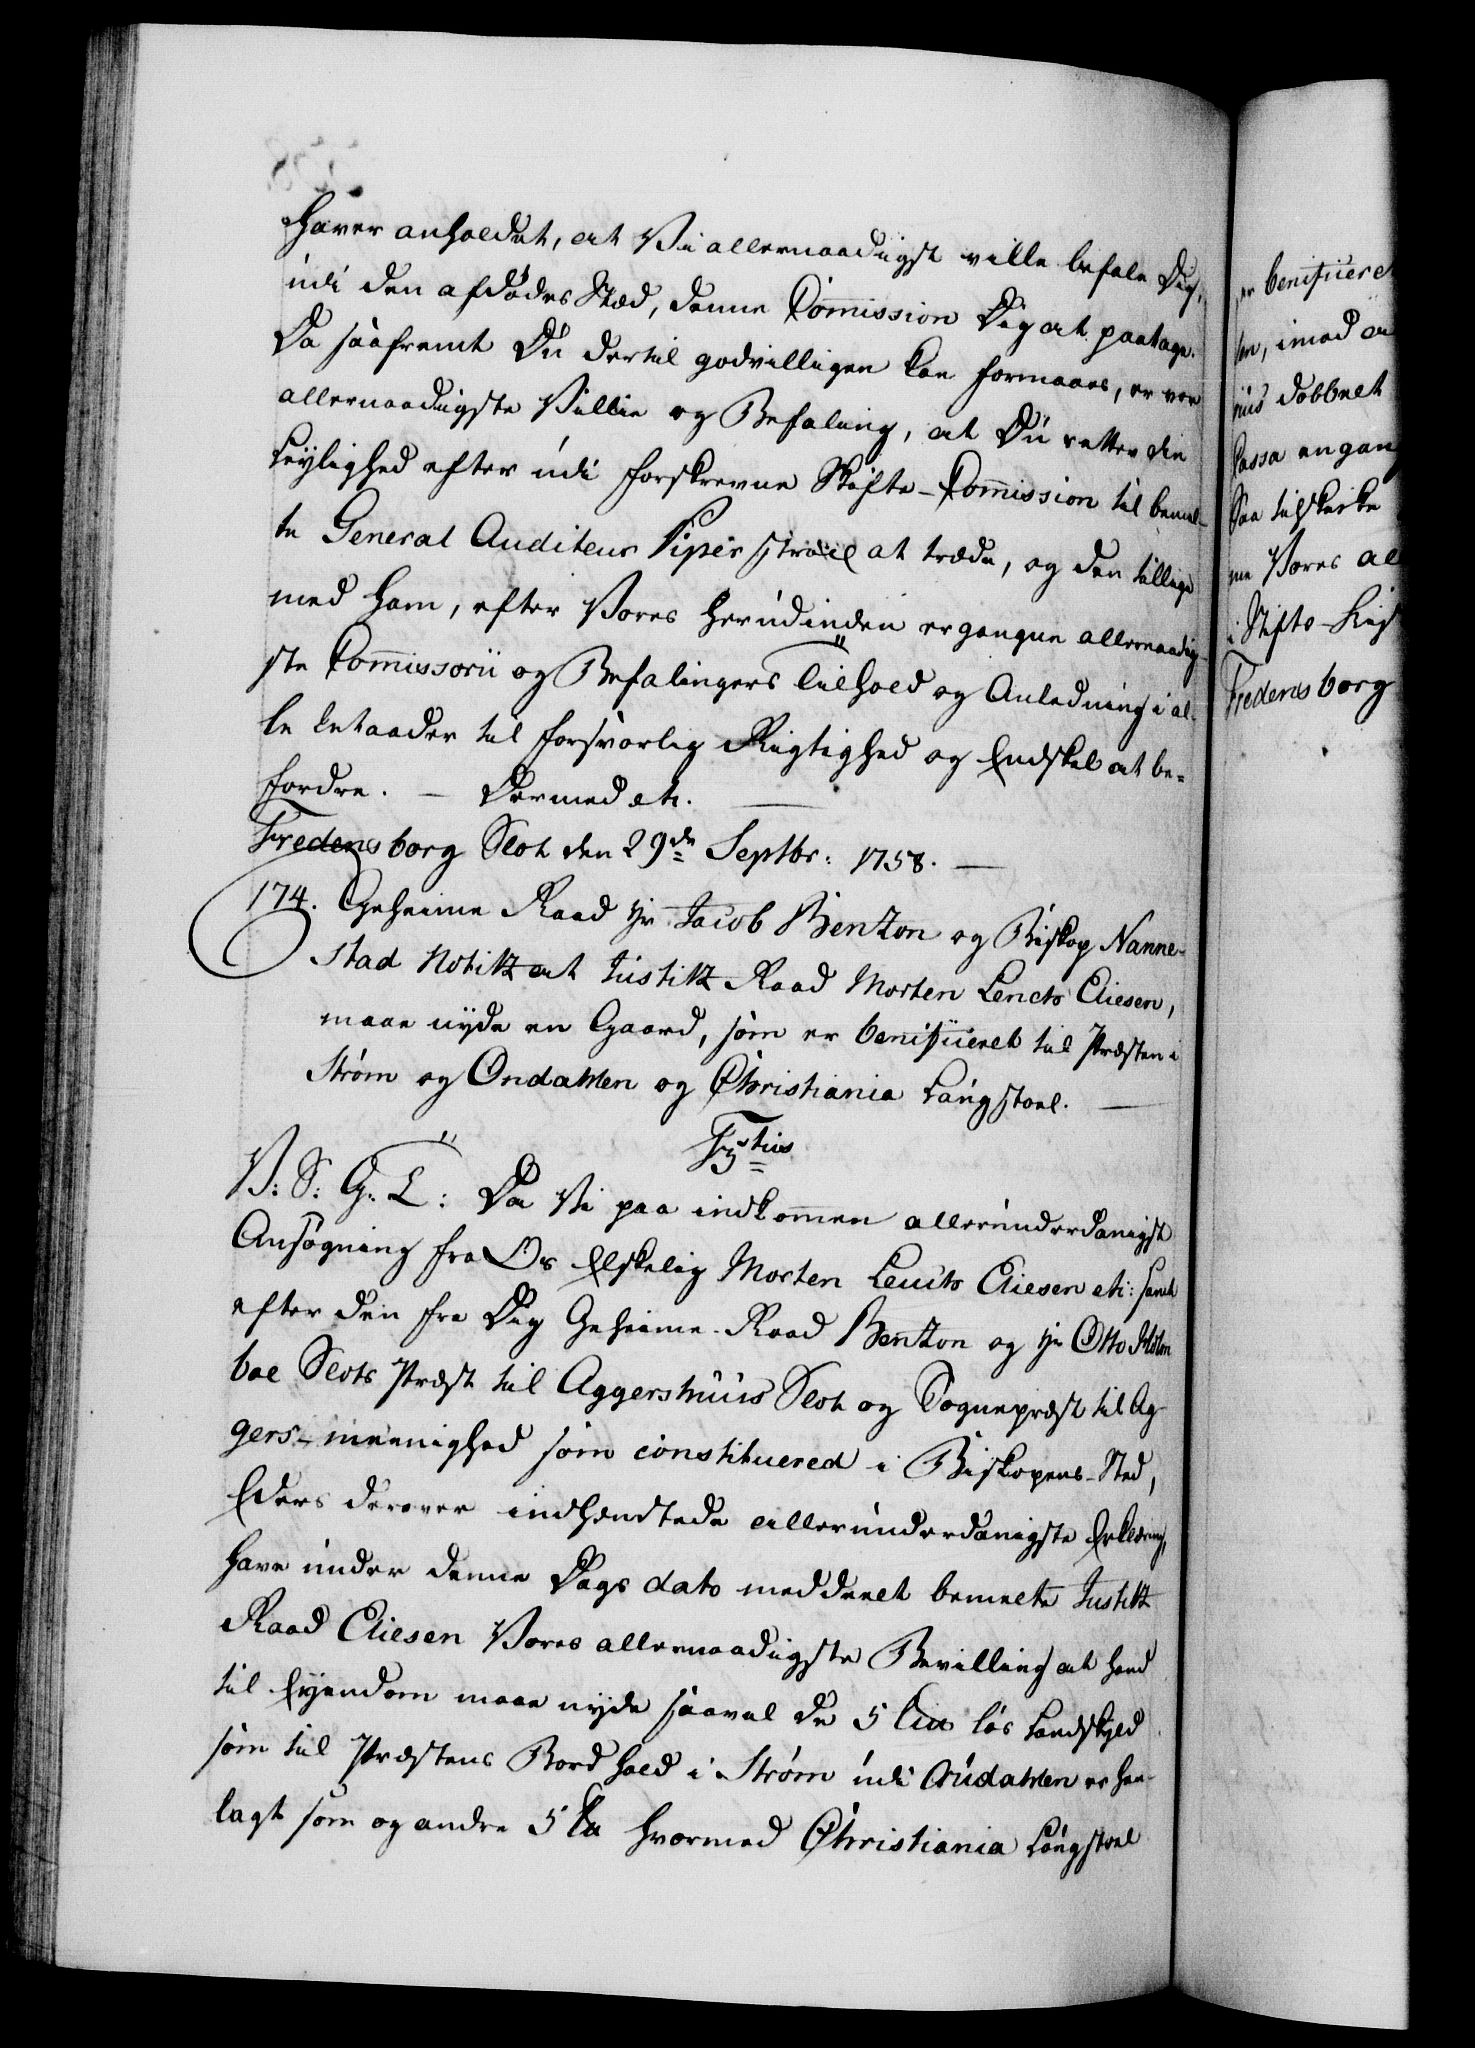 haver anholdet, at Vi allernaadigst ville befale Dig,
udi den afdødes Stæd, denne Commission Dig at paatage.
Da saafremt Du dertil godvilligen kan formaaes, er vor
allernaadigste Villie og Befaling, at Du retter din
Leylighed efter udi forskrevne Skifte-Commission til bemel-
te General Auditeur Piper at træde, og den tillige
med ham, efter Vores herudinden ergangne allernaadig-
ste Commissorii og Befalingers Tilhold og Anledning i al-
le til forsvarlig Rigtighed og Endskab at be-
fordre. – Dermed etc.
Fredensborg Slot den 29de Septbr: 1758. —
174. Geheime Raad Hr Jacob Benzon og Biskop Nanne-
stad Notitz at Justitz Raad Morten Leuch Eliesen,
maae nyde en Gaard, som er benificeret til Præsten i
Strøm og Ondahlen og Christiania Laugstoel. —
V: S: G: T: Da Vi paa indkommen allerunderdanigst
Ansøgning fra Os Elskelig Morten Leuch Eliesen etc: samt
efter den fra Dig Geheime-Raad Benzon og Hr Otto Holm
boe Slots Præst til Aggershuus Slot og Sognepræst til Ag
gers-meenighed som constituered i Biskopens Sted,
Eders derover indhændtede allerunderdanigste Erklæring,
have under denne Dags dato meddeelt bemelte Justitz
Raad Eliesen Vores allernaadigste Bevilling at hand
til Eyendom maae nyde saavel de 5 Lis løs Landskyld
som til Præstens Bord hold i Strøm udi Oudahlen er hen-
lagt som og andre 5 hvormed Christiania Laugstoel
er benificeret
imod
dobbelt
Cassa engang
Saa tilskikke
Vores al
i Stifts-Kist
Fredensborg